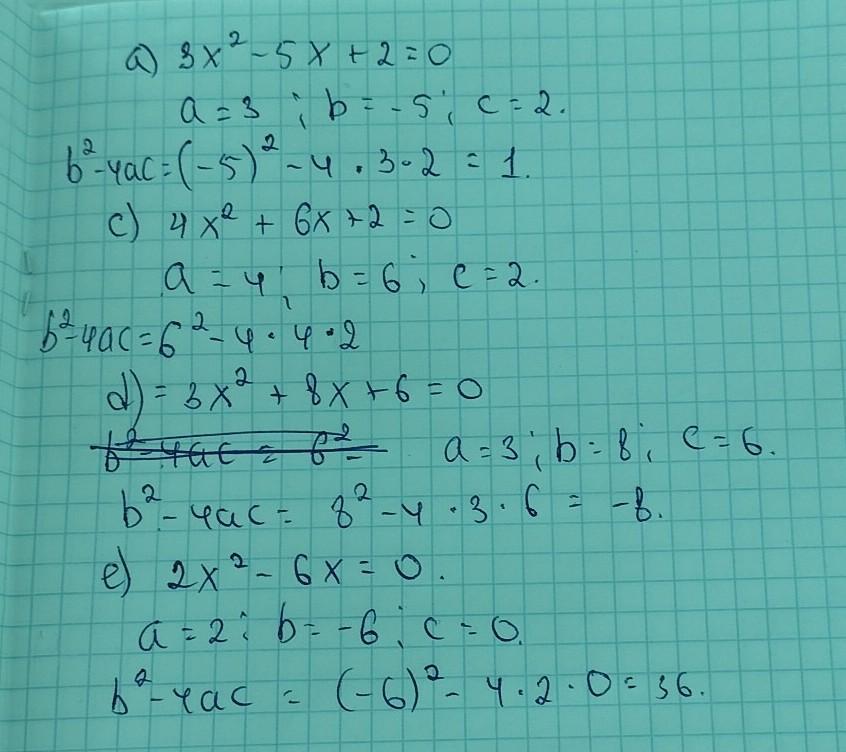 a) 3x² - 5x + 2 = 0
a = 3 ; b = -5 ; c = 2.
b² - 4ac = (-5)² - 4 · 3 · 2 = 1.
c) 4x² + 6x + 2 = 0
a = 4 ; b = 6 ; c = 2.
b² - 4ac = 6² - 4 · 4 · 2
d) = 3x² + 8x + 6 = 0
b² - 4ac = 6² - a = 3 ; b = 8 ; c = 6.
b² - 4ac = 8² - 4 · 3 · 6 = -8.
e) 2x² - 6x = 0.
a = 2 ; b = -6 ; c = 0.
b² - 4ac = (-6)² - 4 · 2 · 0 = 36.